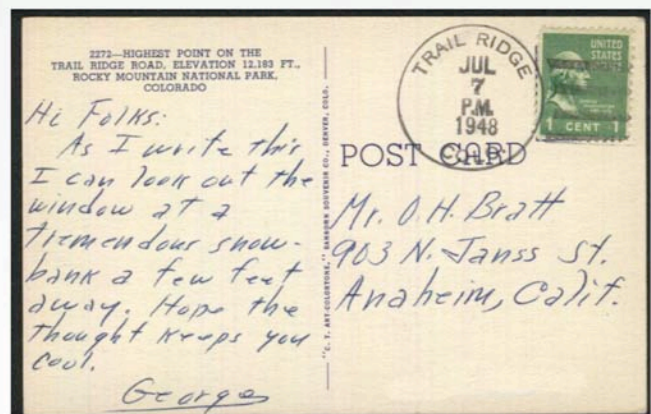 2272—HIGHEST POINT ON THE
TRAIL RIDGE ROAD, ELEVATION 12,183 FT.,
ROCKY MOUNTAIN NATIONAL PARK,
COLORADO
Hi Folks:
As I write this
I can look out the
window at a
tremendous snow-
bank a few feet
away. Hope the
thought keeps you
cool.
George
"C. T. ART-COLORTONE," SANBORN SOUVENIR CO., DENVER, COLO.
TRAIL RIDGE
JUL
7
P.M.
1948
COLO.
UNITED
STATES
1 CENT 1
POST CARD
Mr. O.H. Bratt
903 N. Janss St.
Anaheim, Calif.